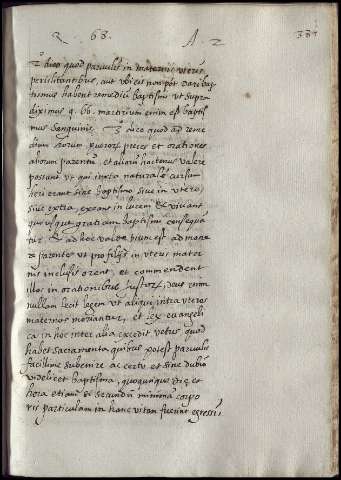 Q. 68. A. 2 381
dico quod parvulis in maternis uteris
periclitantibus, aut ubi eis non pōt dari bap
tismus habent remediū baptismi ut supra
diximus q. 66. martirium enim est baptis
mus sanguinis. dico quod ad reme
dium horum puerorū preces et orationes
aliorum parentum, et aliorū hactenus valere
possunt, ut qui iuxta naturalē cursum
sine baptismo sive in utero,
sive extra, exeant in lucem et vivant
quousque gratiam baptismi consequā
tur. et ad hoc valde bonum est admone
re parentes ut pro filijs in uteris mater
nis inclusis orent, et commendent
illos in orationibus iustorū, deus enim
nullam fecit legem ut aliqui intra uteros
maternos moriantur, et lex evangeli
ca in hoc inter alia excedit vetus quod
habet sacramenta quibus potest parvulis
facillime subvenire ac certo et sine dubio
videlicet baptisma, quocunque die et
hora etiam si secundū minimā corpo
ris particulam in hanc vitam fuerint egressi